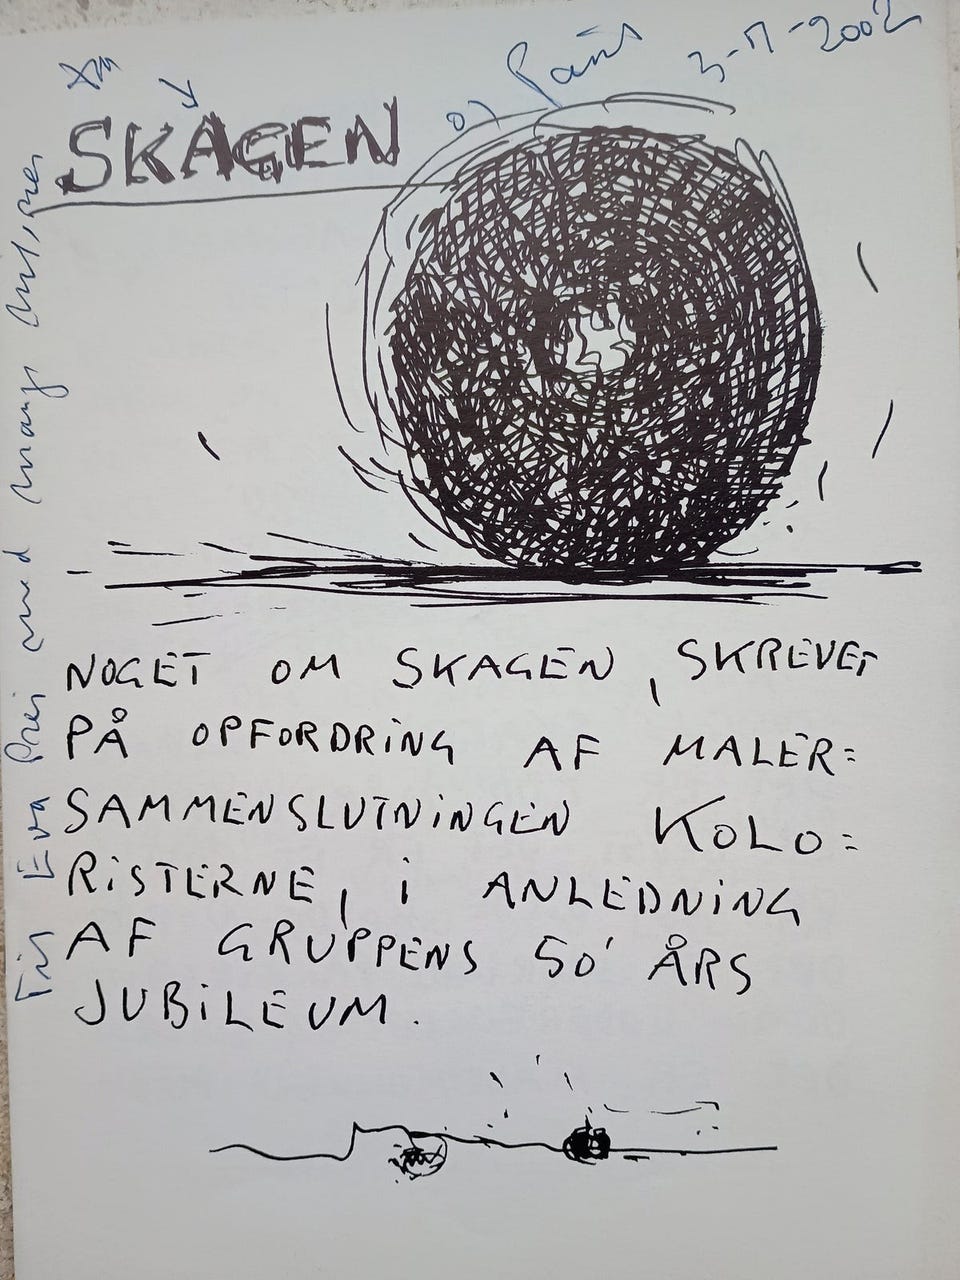 SKAGEN
og Paris 3-7-2002
NOGET OM SKAGEN, SKREVET
PÅ OPFORDRING AF MALER=
SAMMENSLUTNINGEN KOLO=
RISTERNE, i ANLEDNING
AF GRUPPENS 50' ÅRS
JUBiLEUM.
Til Eva med mange